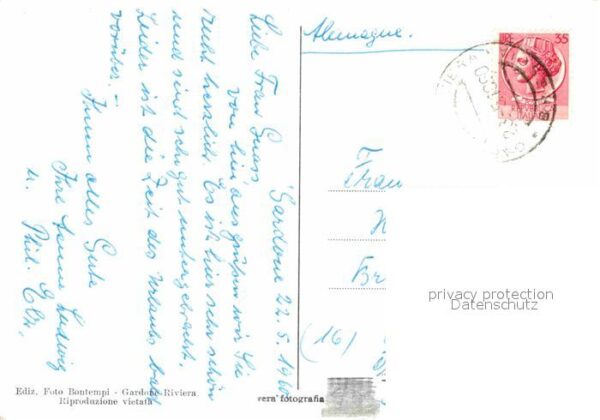 Gardone 22.5.1960
Liebe Frau
von hier aus grüßen wir Sie
recht herzlich. Es ist hier sehr schön
und sind sehr gut untergebracht.
Leider ist die Zeit des Urlaubs bald
vorüber. –
Ihnen alles Gute
Ihre Ludwig
u. Phil.
Alemagne.
35
Frau
(16)
privacy protection
Datenschutz
Ediz. Foto Bontempi - Gardone-Riviera
Riproduzione vietata
vera fotografia